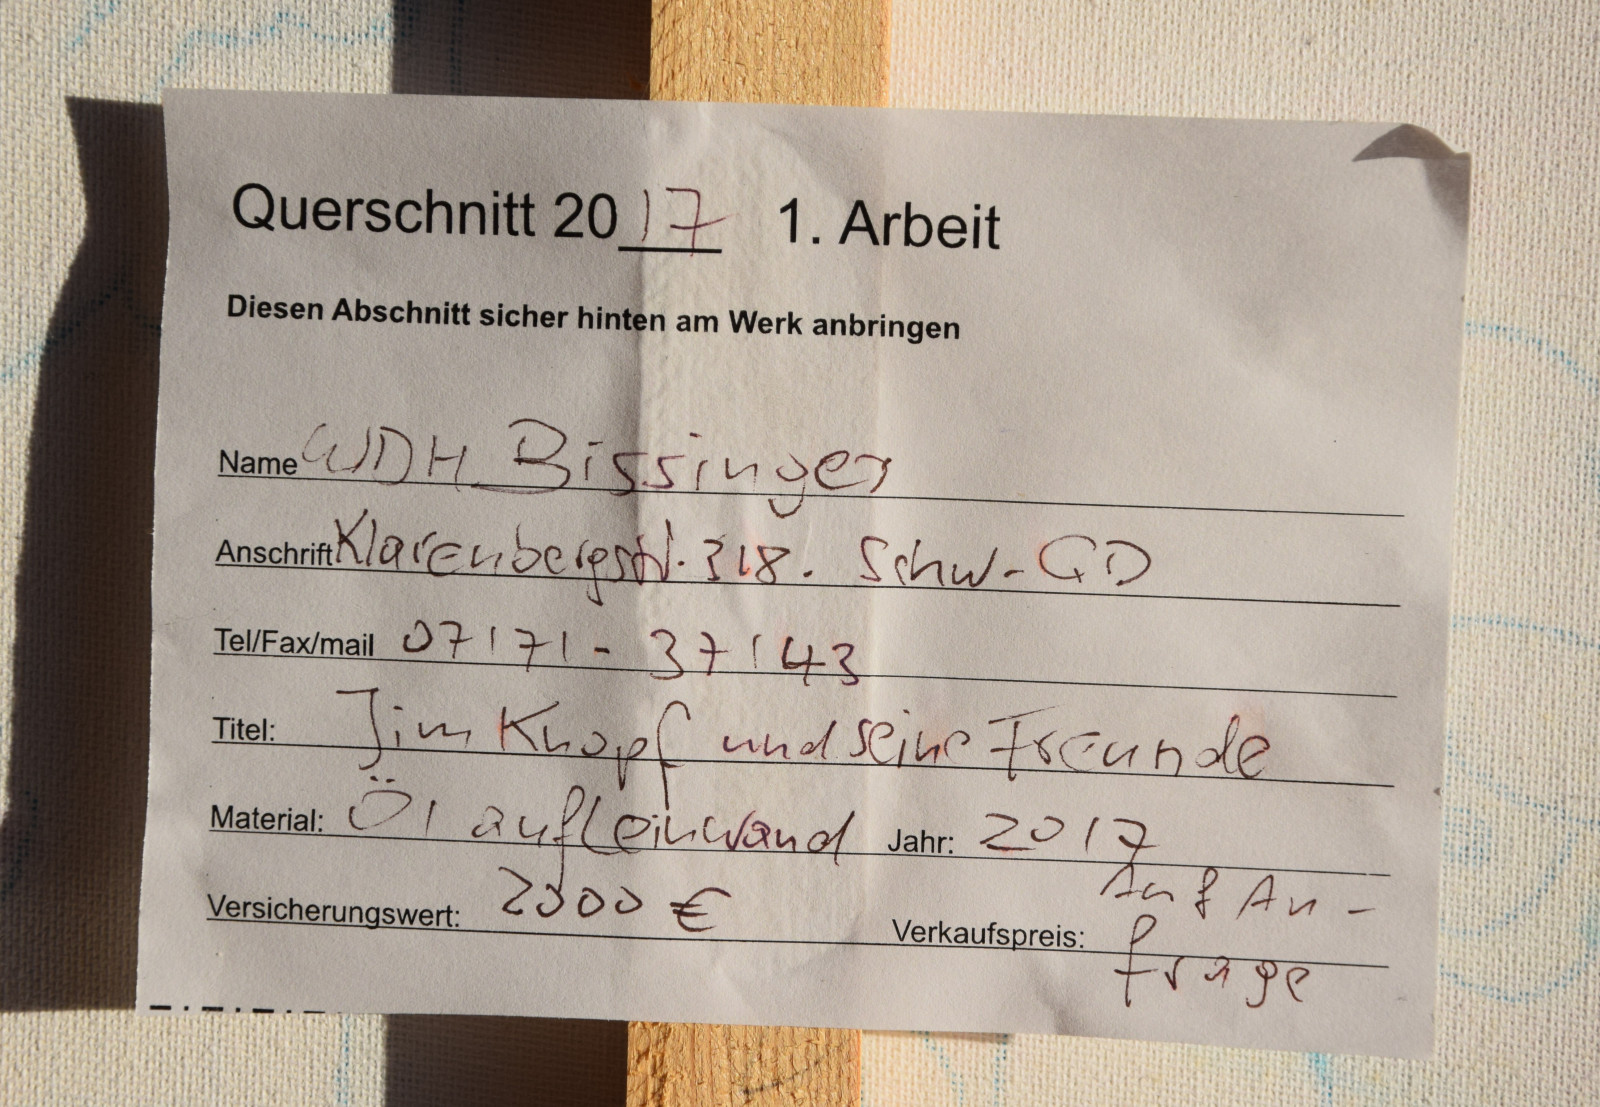 Querschnitt 2017 1. Arbeit
Diesen Abschnitt sicher hinten am Werk anbringen
Name WDH Bissinger
Anschrift Klarenbergstr. 318. Schw-GD
Tel/Fax/mail 07171-37143
Titel: Jim Knopf und seine Freunde
Material: Öl auf Leinwand Jahr: 2017
Versicherungswert: 2000 € Verkaufspreis: Auf An-
frage